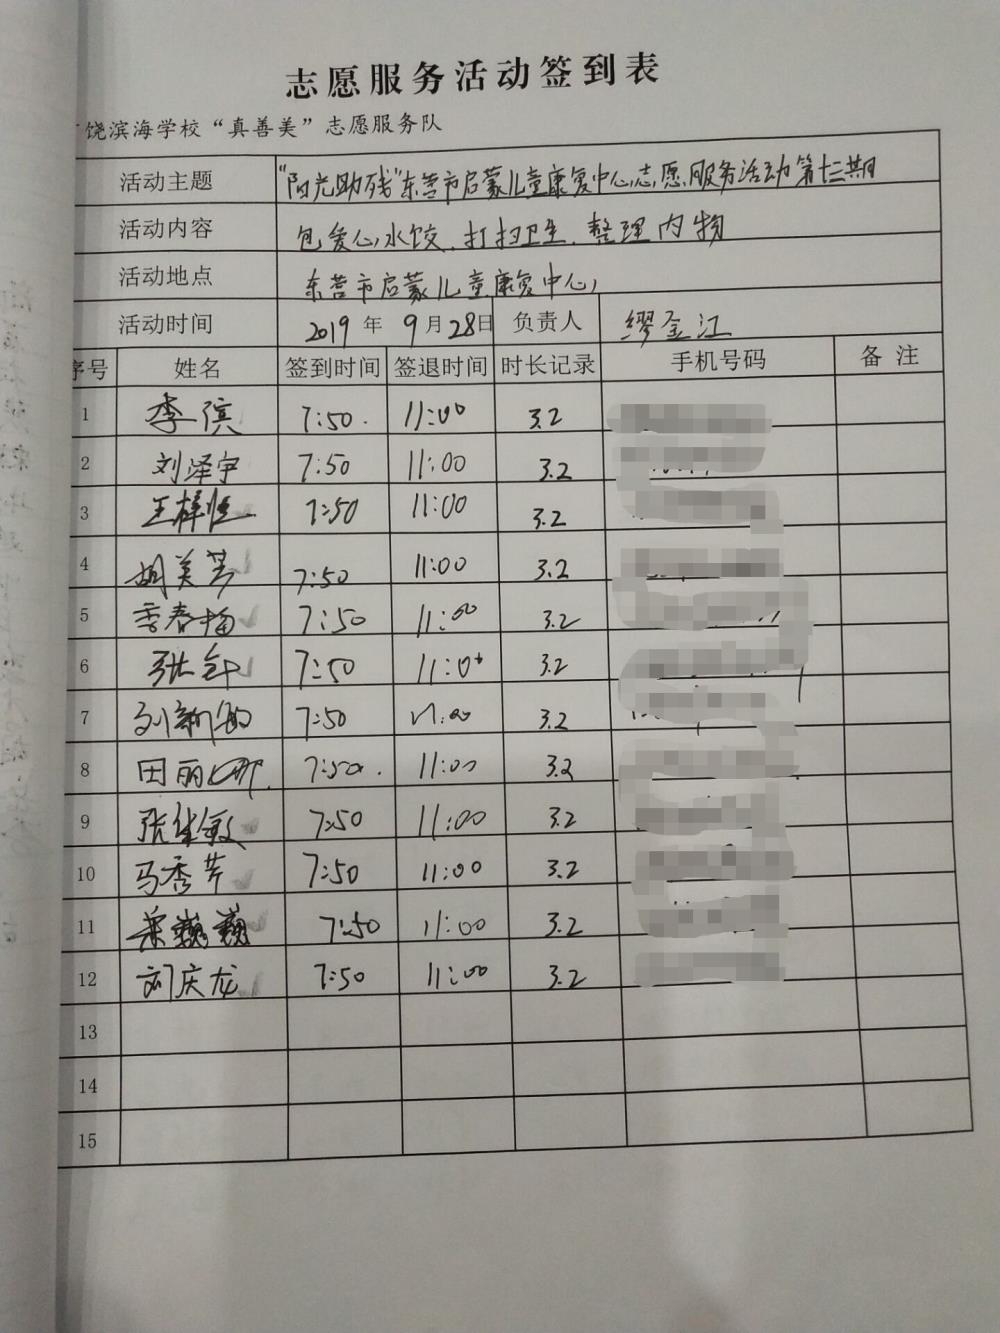 志愿服务活动签到表
饶滨海学校“真善美”志愿服务队
活动主题 “阳光助残”东营市启蒙儿童康复中心志愿服务活动第十三期
活动内容 包爱心水饺、打扫卫生、整理内物
活动地点 东营市启蒙儿童康复中心
活动时间 2019年9月28日 负责人 缪金江
序号 姓名 签到时间 签退时间 时长记录 手机号码 备注
1 李滨 7:50. 11:00 3.2
2 刘泽宇 7:50 11:00 3.2
3 王梓恒 7:50 11:00 3.2
4 胡美芳 7:50 11:00 3.2
5 季春梅 7:50 11:00 3.2
6 7:50 11:00 3.2
7 7:50 11:00 3.2
8 田丽娜 7:50. 11:00 3.2
9 张继敏 7:50 11:00 3.2
10 马秀芹 7:50 11:00 3.2
11 巍巍 7:50 11:00 3.2
12 刘庆龙 7:50 11:00 3.2
13
14
15